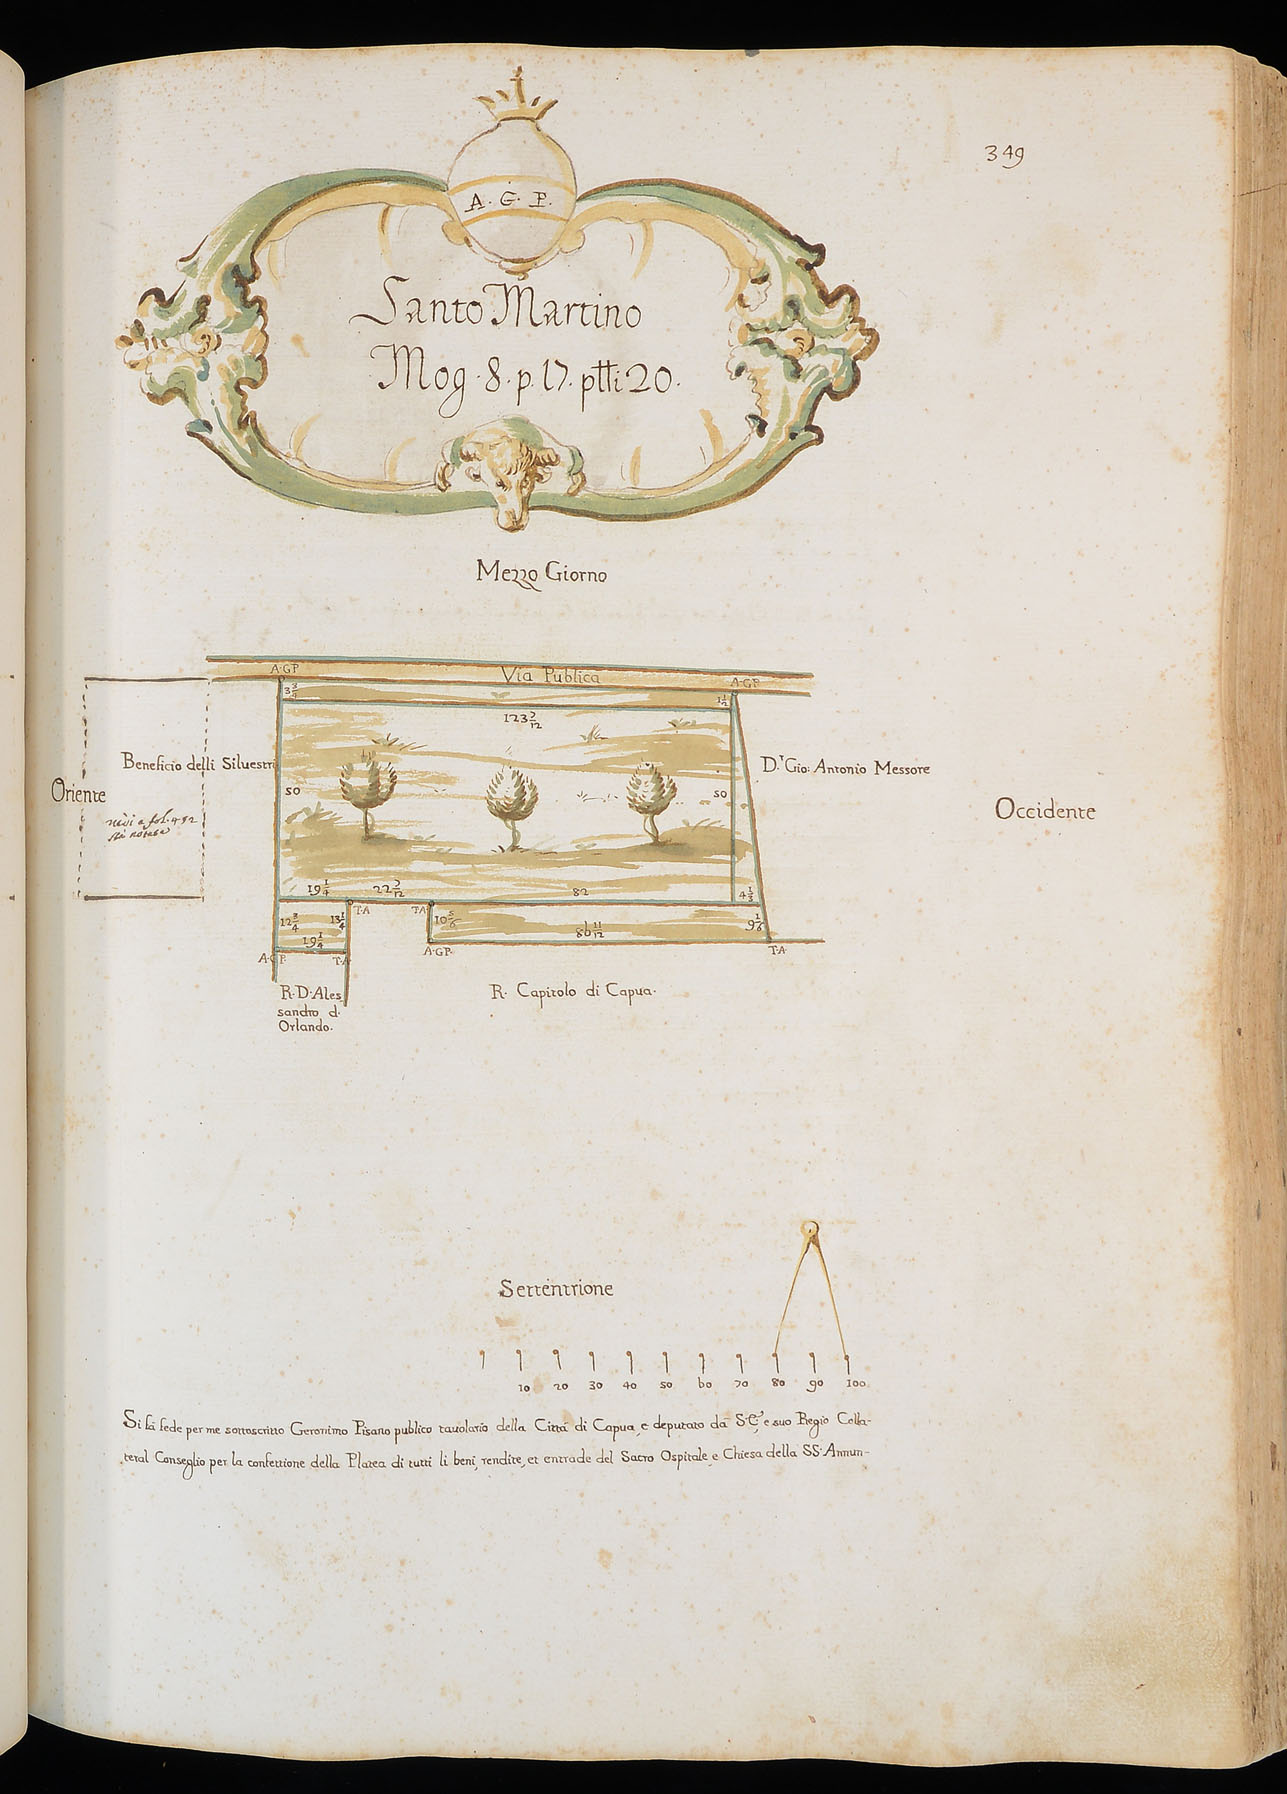 349
A. G. P.
Santo Martino
Mog. 8. p. 17. ptti 20.
Mezzo Giorno
A.G.P
Via Publica
A.G.P
3 3/4
1 1/2
123 7/12
Beneficio delli Siluestri
D.r Gio: Antonio Messore
Oriente
50
50
Occidente
fol. 492
19 1/4
22 7/12
82
4 1/3
T.A
T.A
12 3/4
13 1/4
10 5/6
86 11/12
9 1/6
19 1/4
A.G.P.
T.A
A.G.P.
T.A.
R. D. Ales
sandro d.
Orlando.
R. Capitolo di Capua.
Settentrione
10 20 30 40 50 60 70 80 90 100
Si fà fede per me sottoscritto Geronimo Pisano publico tauolario della Città di Capua, e deputato da S. E. e suo Regio Colla-
teral Conseglio per la confettione della Platea di tutti li beni, rendite, et entrade del Sacro Ospitale, e Chiesa della SS. Annun-